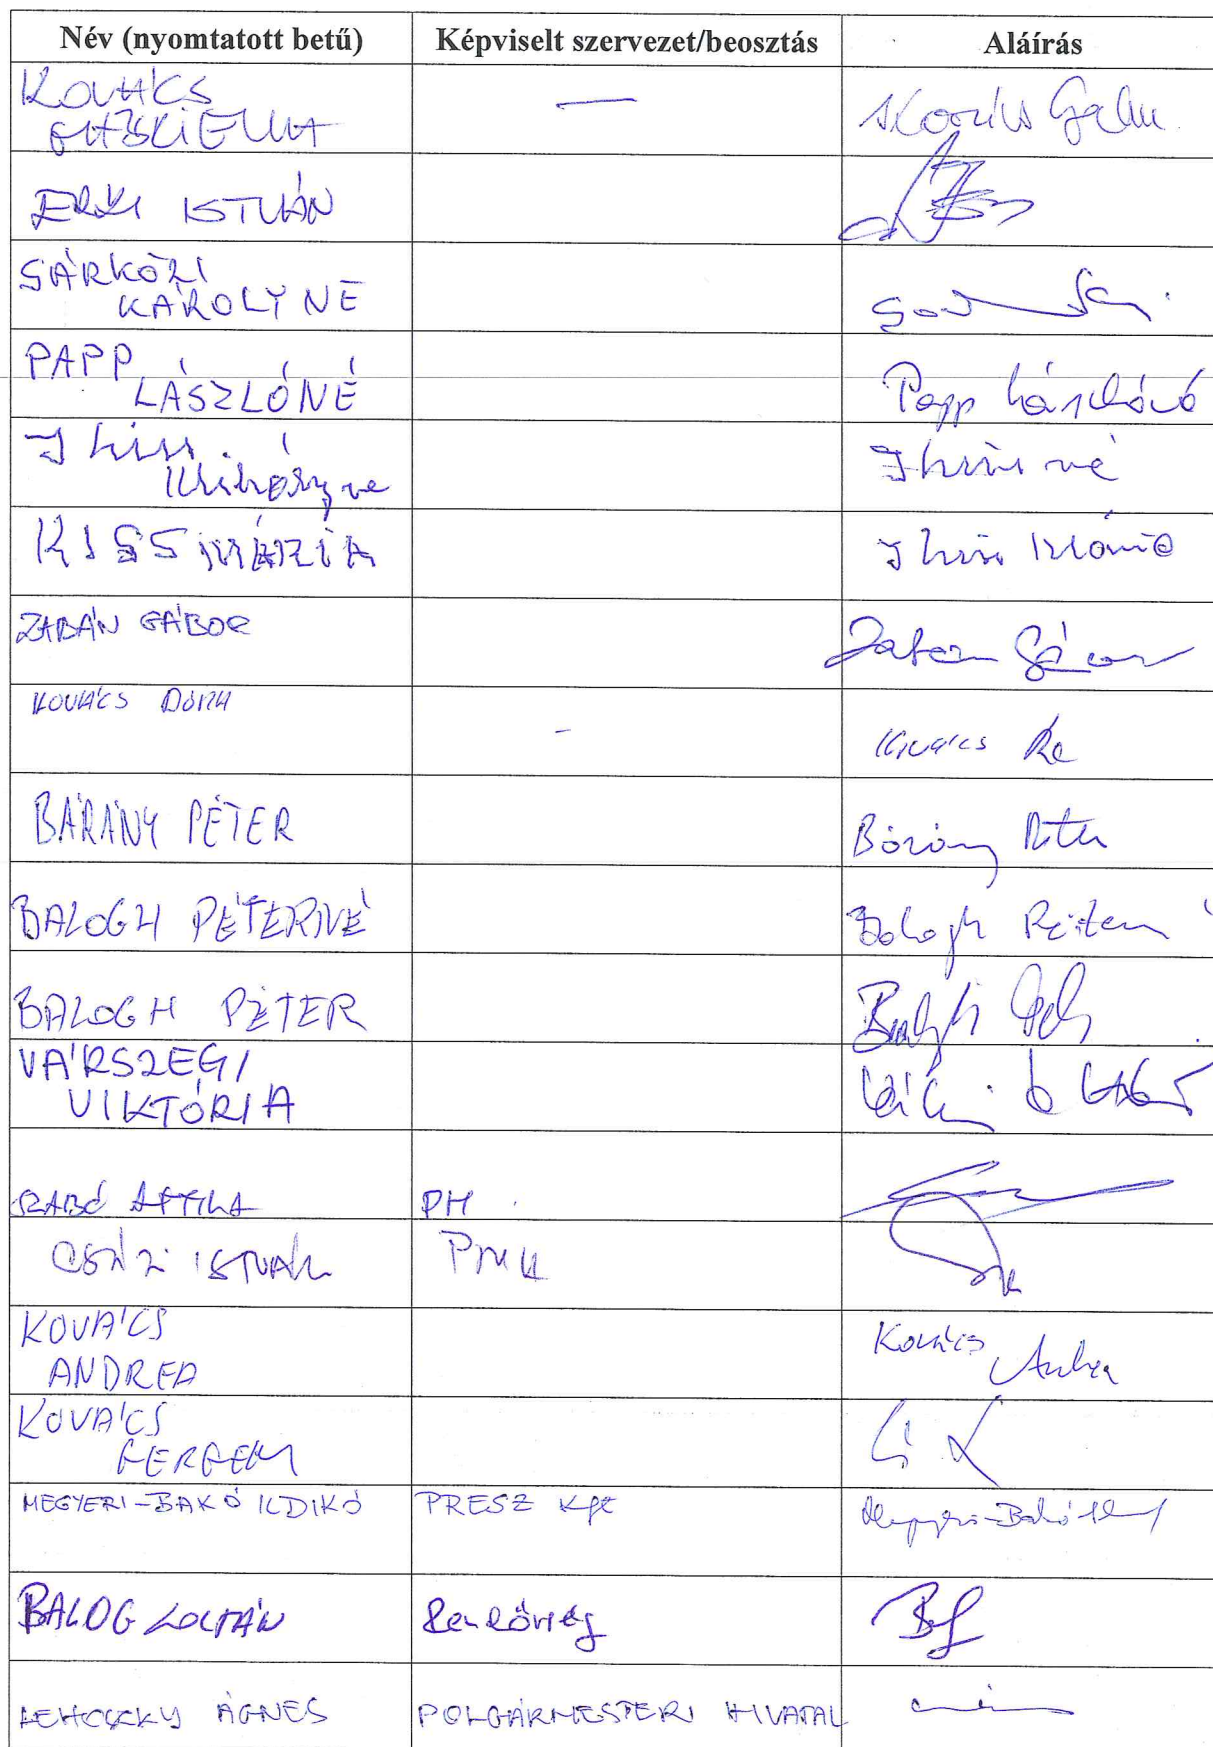 Név (nyomtatott betű) Képviselt szervezet/beosztás Aláírás
KOVÁCS
GABRIELLA — Kovács Gabr
ERKI ISTVÁN
SÁRKÖZI
KÁROLYNÉ
PAPP
LÁSZLÓNÉ Papp Lászlóné
J Kiss
Mihályné J Kissné
KISS MÁRIA J Kiss Mária
ZABÁN GÁBOR Zabán Gábor
KOVÁCS DÓRA - Kovács
BÁRÁNY PÉTER Bárány Péter
BALOGH PÉTERNÉ Balogh Péterné
BALOGH PÉTER Balogh
VÁRSZEGI
VIKTÓRIA
SZABÓ ATTILA PH
ISTVÁN
KOVÁCS
ANDREA Kovács Andrea
KOVÁCS
GERGELY
MEGYERI-BAKÓ ILDIKÓ PRESZ Kft Megyeri-Bakó
BALOG ZOLTÁN Rendőrség
LEHOCZKY ÁGNES POLGÁRMESTERI HIVATAL